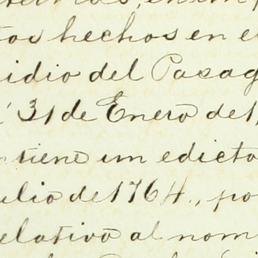 tos hechos en e
sidio del Pasag
31 de Enero de 1
tiene un edicto
ulio de 1764., po
elativo al nom